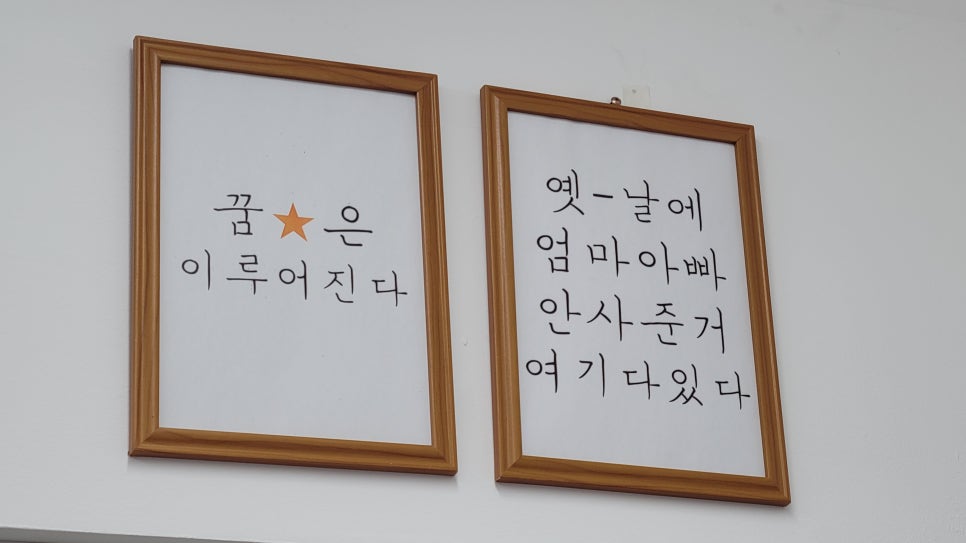 꿈★은
이루어진다
옛-날에
엄마아빠
안사준거
여기다있다